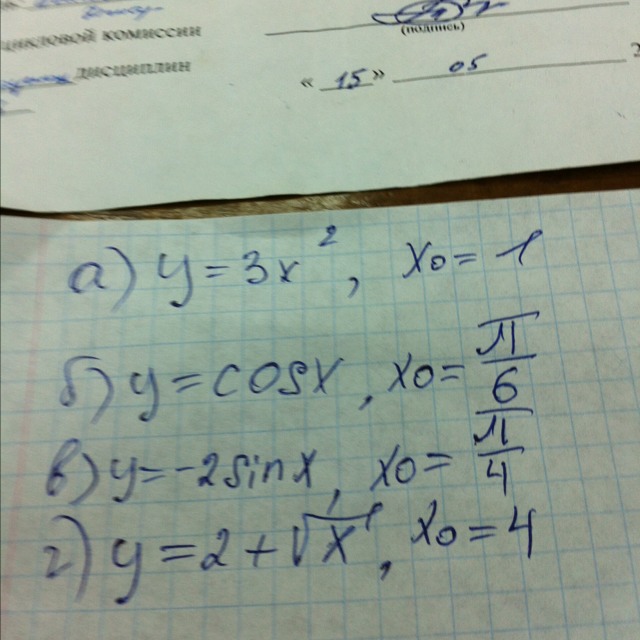 цикловой комиссии
(подпись)
дисциплин
« 15 » 05
а) y = 3x², x₀ = 1
б) y = cosx, x₀ = π/6
в) y = -2sinx, x₀ = π/4
г) y = 2 + √x, x₀ = 4